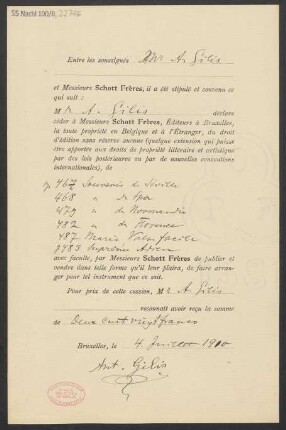 55 Nachl 100/B, 22746
Entre les soussignés Mr A. Gilis
et Messieurs Schott Frères, il a été stipulé et convenu ce
qui suit :
Mr A. Gilis déclare
céder à Messieurs Schott Frères, Éditeurs à Bruxelles,
la toute propriété en Belgique et à l'Étranger, du droit
d'édition sans réserve aucune (quelque extension qui puisse
être apportée aux droits de propriété littéraire et artistique
par des lois postérieures ou par de nouvelles conventions
internationales), de
467 Souvenir de Séville
468 " de Spa
479 " de Normandie
482 " de Florence
487 Marie Valse facile
Suprême Adieu
avec faculté, par Messieurs Schott Frères de publier et
vendre dans telle forme qu'il leur plaira, de faire arran-
ger par les instrument que ce soit.
Pour prix de cette cession, Mr A Gilis
reconnaît avoir reçu la somme
de Deux cent vingt francs
Bruxelles, le 4 Juillet 1910
Ant. Gilis